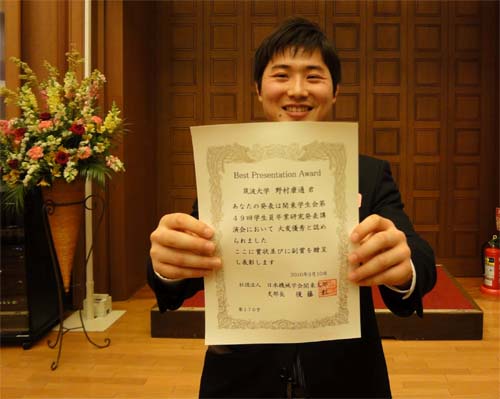 Best Presentation Award
筑波大学 野村康通 君
あなたの発表は関東学生会第
49回学生員卒業研究発表講
演会において 大変優秀と認め
られました
ここに賞状並びに副賞を贈呈
し表彰します
3月10日
社団法人 日本機械学会関東支
支部長 後藤
第176号